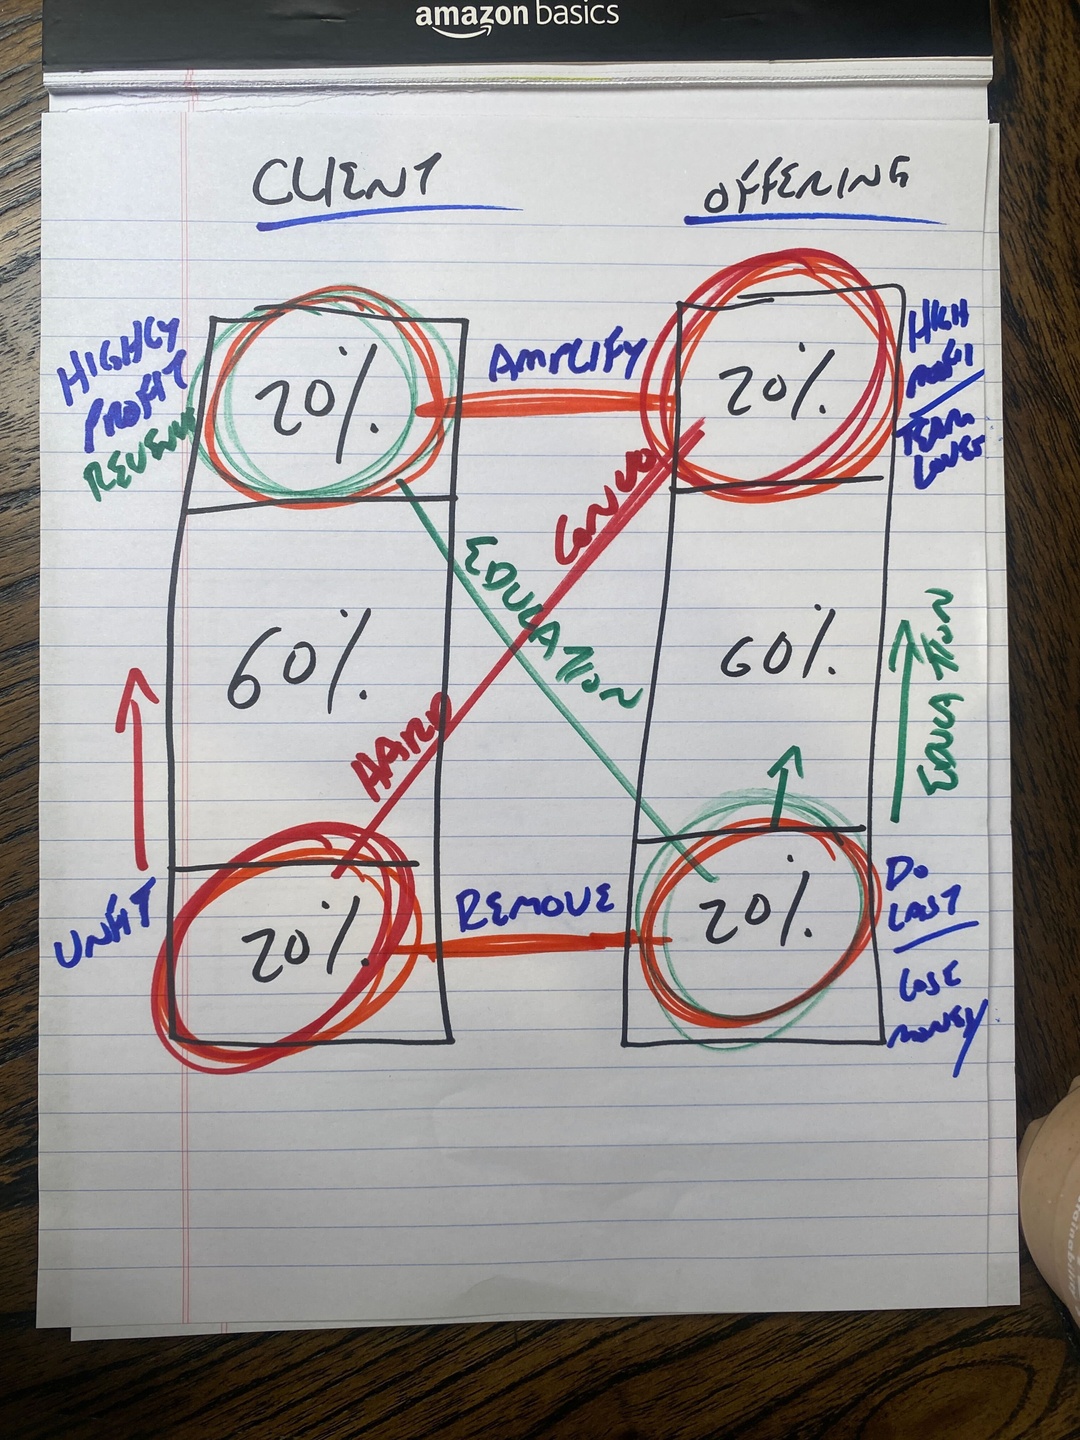 amazon basics
CLIENT
OFFERING
HIGHLY
PROFIT
REVENUE
20%
AMPLIFY
20%
HIGH
PROFIT
TEAM
LOVES
HARD CONVO
EDUCATION
60%
60%
EDUCATION
UNFIT
20%
REMOVE
20%
DO
LAST
LOSE
MONEY